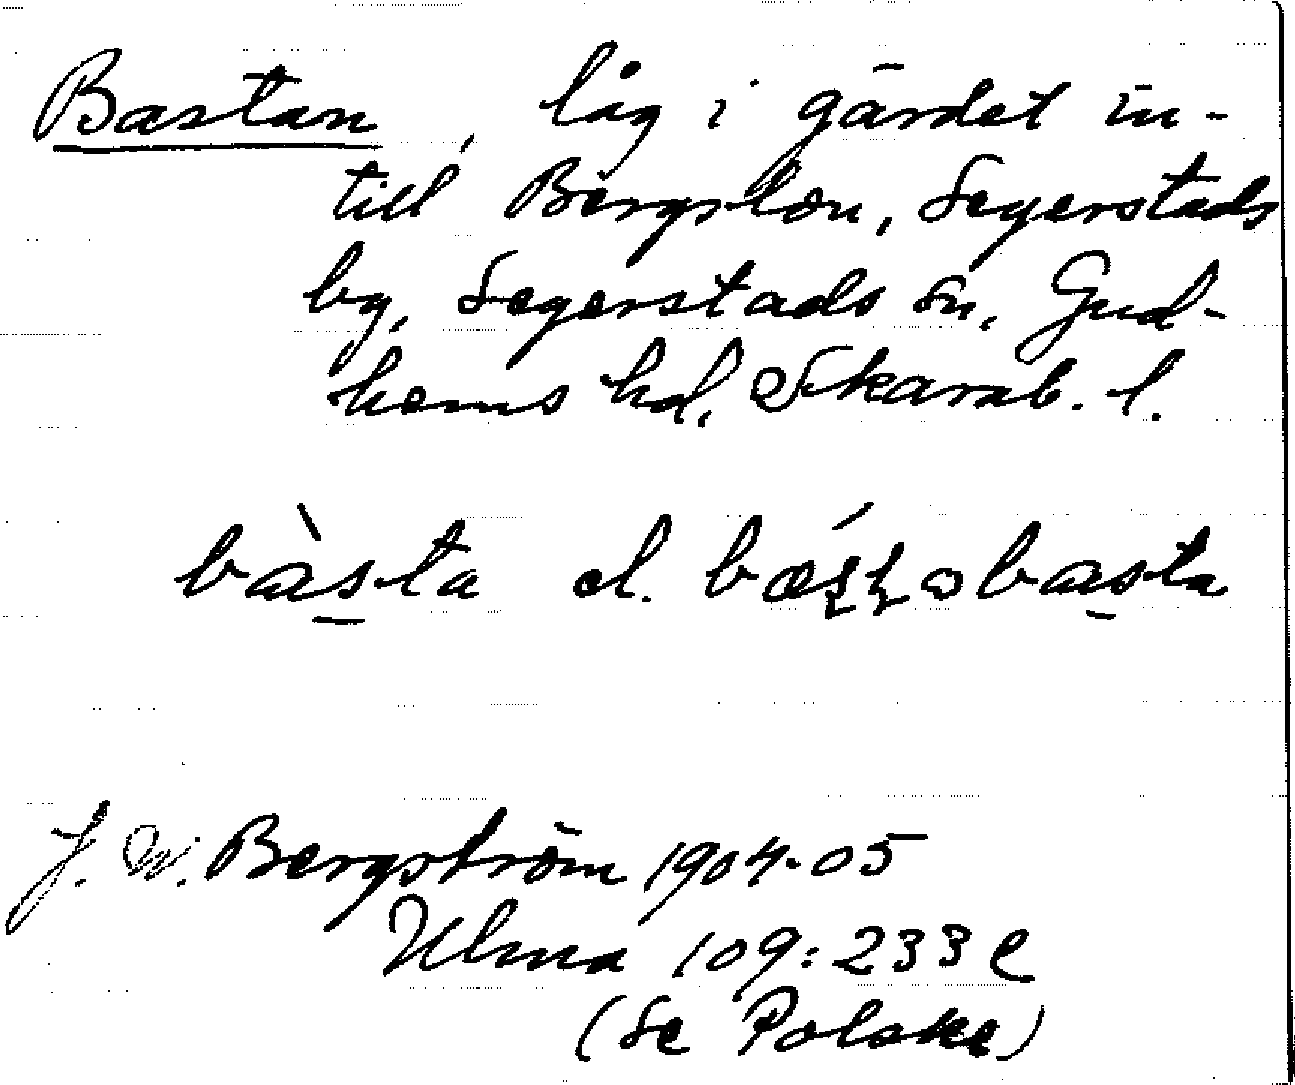 Bastan, låg i gärdet in-
till Bergslön, Segerstads
by, Segerstads sn, Gud-
hems hd, Skarab. l.
bàsta el.
J. W. Bergström 1904-05
Ulma 109:233 e
(Se Polske)